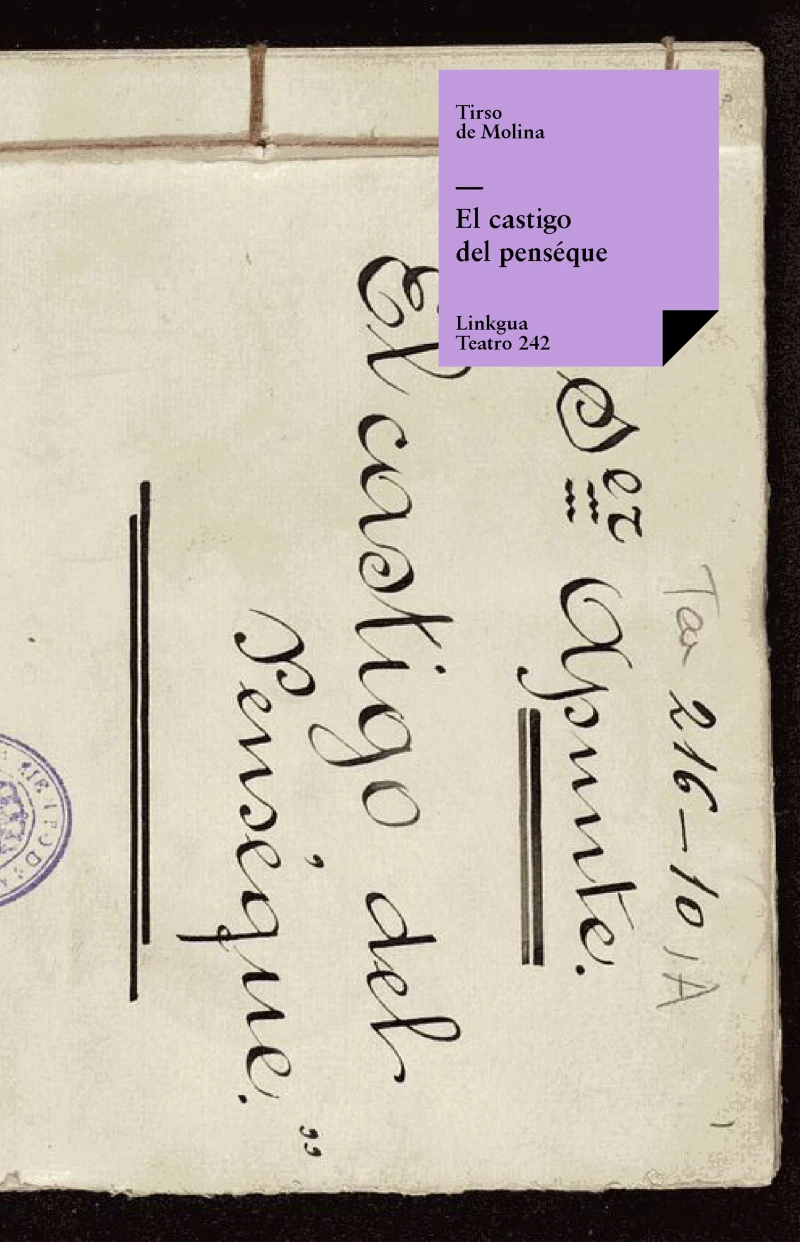 Tirso
de Molina
—
El castigo
del penséque
Linkgua
Teatro 242
Tea 216-10, A
Apunte.
El castigo del
Penséque."